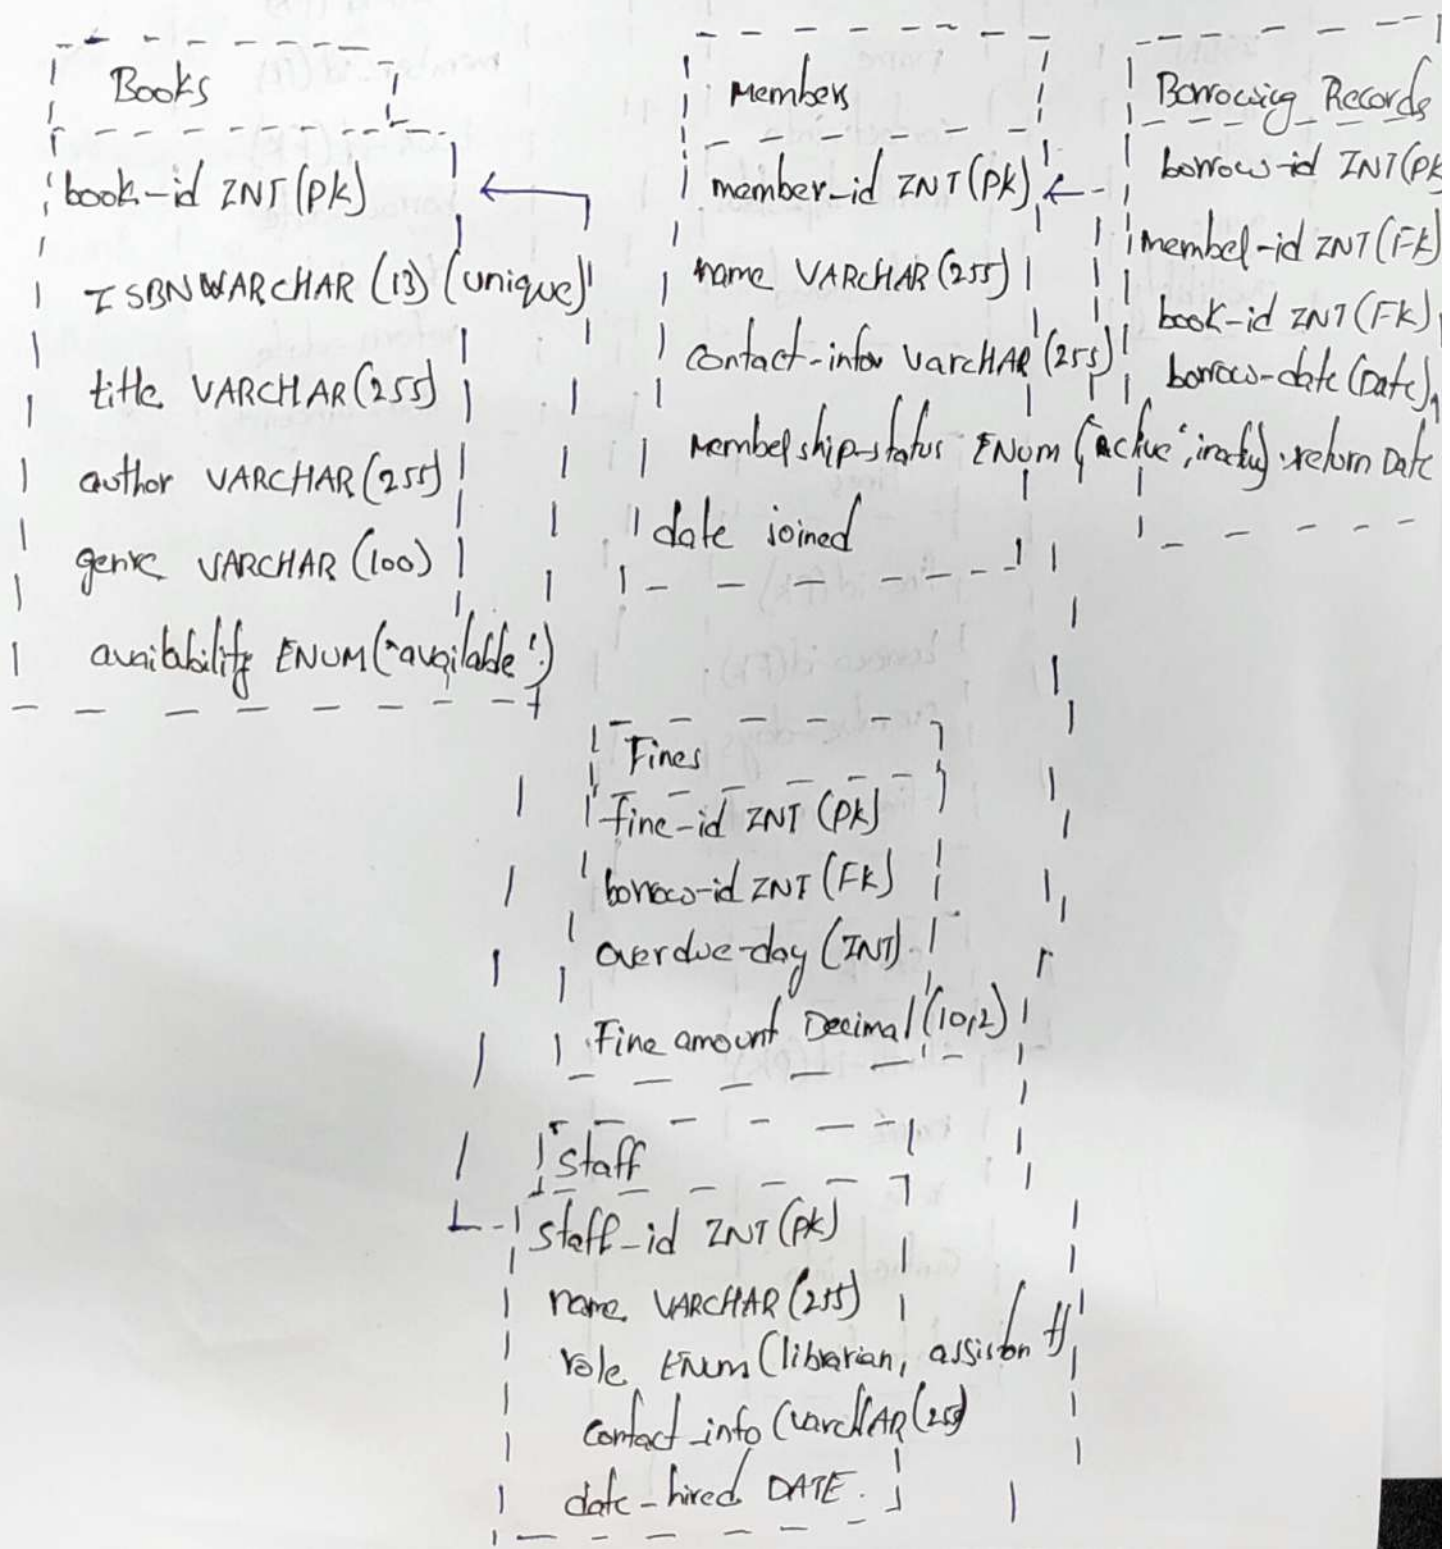 Books
book-id INT (PK)
ISBN VARCHAR (13) (unique)
title VARCHAR (255)
author VARCHAR (255)
genre VARCHAR (100)
availability ENUM ("available".)
Members
member-id INT (PK)
name VARCHAR (255)
contact-info VarcHAR (255)
Membership-status ENum ("active",
date joined
Borrowing Records
borrow-id INT (PK
member-id INT (FK)
book-id INT (FK)
borrow-date (Date)
return Date
Fines
fine-id INT (PK)
borrow-id INT (FK)
overdue-day (INT).
Fine amount Decimal (10,2)
Staff
Staff-id INT (PK)
name VARCHAR (255)
role ENum (librarian,
contact-info (varcHAR (255)
date-hired DATE.